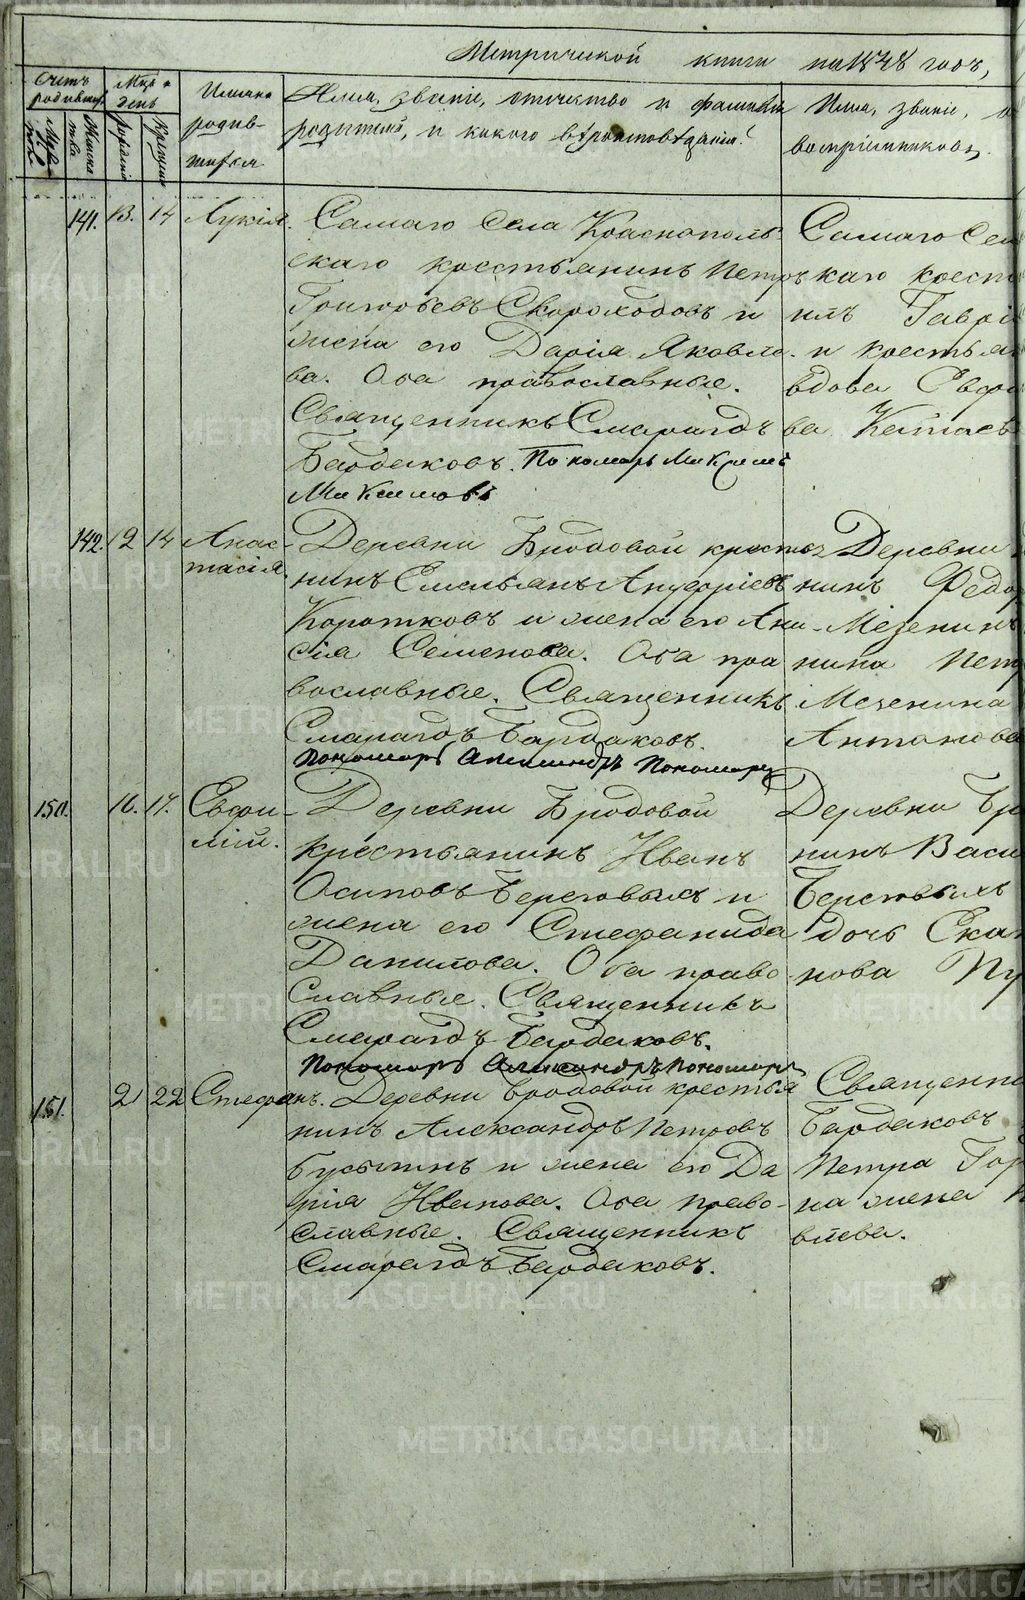 Метрической книги на 1878 годъ,
Счетъ родившихся
Мужеска
Женска
Мца и день
рожденія
крещенія
Имена родив-
шихся
Имя, званіе, отечество и фамилія
родителей, и какого вѣроисповѣданія?
Имя, званіе, о
воспріемниковъ.
141. 13. 14 Лукія.
Самаго села Краснополь-
скаго крестьянинъ Петръ
Григорьевъ Скороходовъ и
жена его Дарія Яковле-
ва. Оба православные.
Священникъ Смарагдъ
Бардаковъ. Пономарь Максимъ
Максимовъ
Самаго Сел
каго крест
инъ Гаврі
и крестьян
вдова Евфр
ва Китаев
142. 12 14 Анас-
тасія.
Деревни Бродовой крестья-
нинъ Емельянъ Андреевъ
Коротковъ и жена его Ани-
сія Семенова. Оба пра
вославные. Священникъ
Смарагдъ Бардаковъ.
Пономарь Александръ Пономаревъ
Деревни
нинъ Федор
Мезенинъ
нина Петр
Мезенина
Антонова
150. 16. 17. Евфи-
мій.
Деревни Бродовой
крестьянинъ Иванъ
Осиповъ Береговыхъ и
жена его Стефанида
Данилова. Оба право
славные. Священникъ
Смарагдъ Бардаковъ.
Пономарь Александръ Пономаревъ
Деревни Бро
нинъ Васи
Береговыхъ
дочь Екат
нова Пу
151. 21 22 Стефанъ.
Деревни Бродовой крестья
нинъ Александръ Петровъ
Бусыгинъ и жена его Да
рія Иванова. Оба право-
славные. Священникъ
Смарагдъ Бардаковъ.
Священни
Бардаковъ
Петра Гор
на жена
вiева.
METRIKI.GASO-URAL.RU